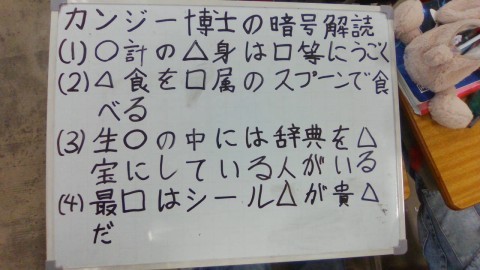 カンジー博士の暗号解読
(1)〇計の△身は□等にうごく
(2)△食を□属のスプーンで食
べる
(3)生〇の中には辞典を△
宝にしている人がいる
(4)最□はシール△が貴△
だ